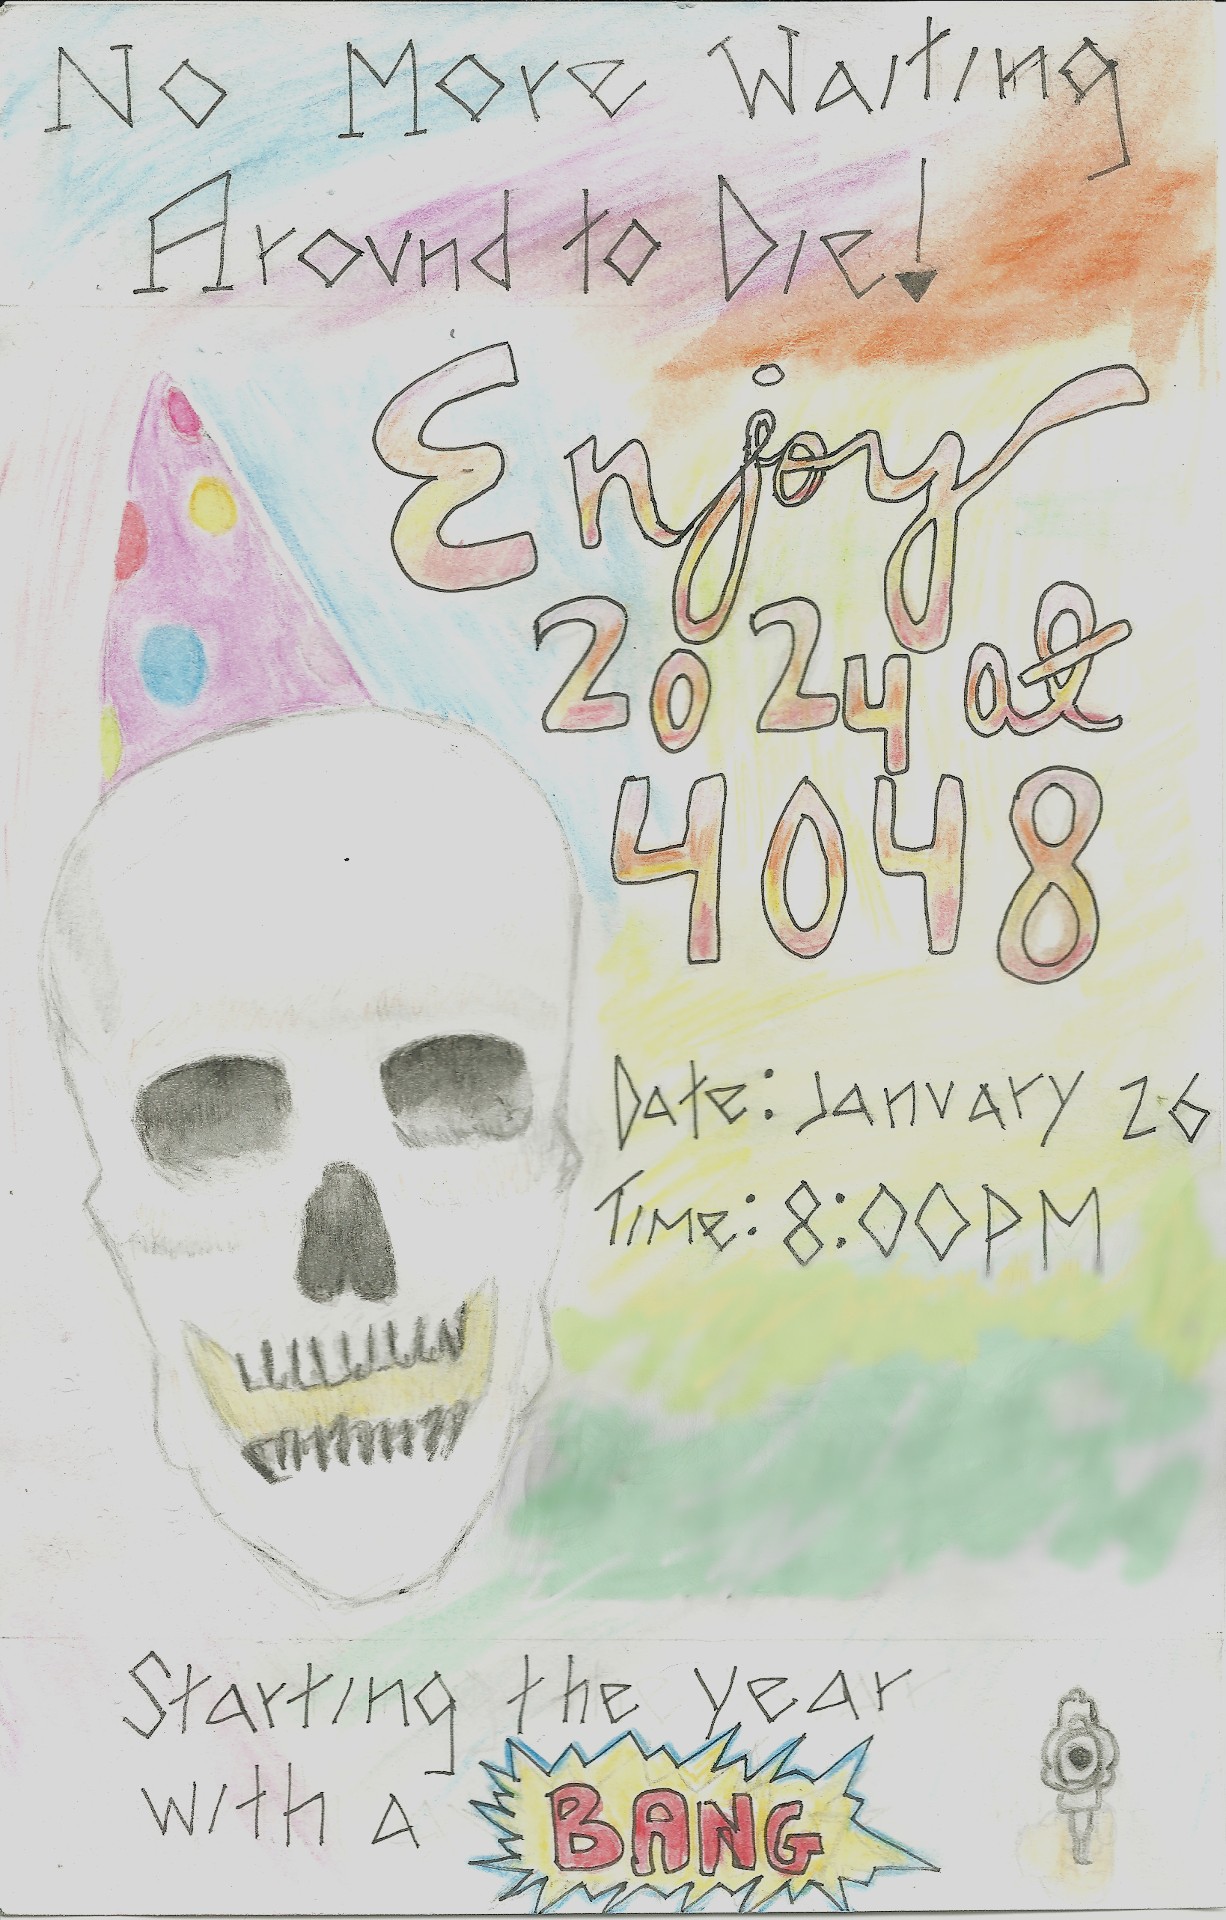 No More Waiting
Around to Die!
Enjoy
2024 at
4048
Date: January 26
Time: 8:00PM
Starting the year
with a BANG